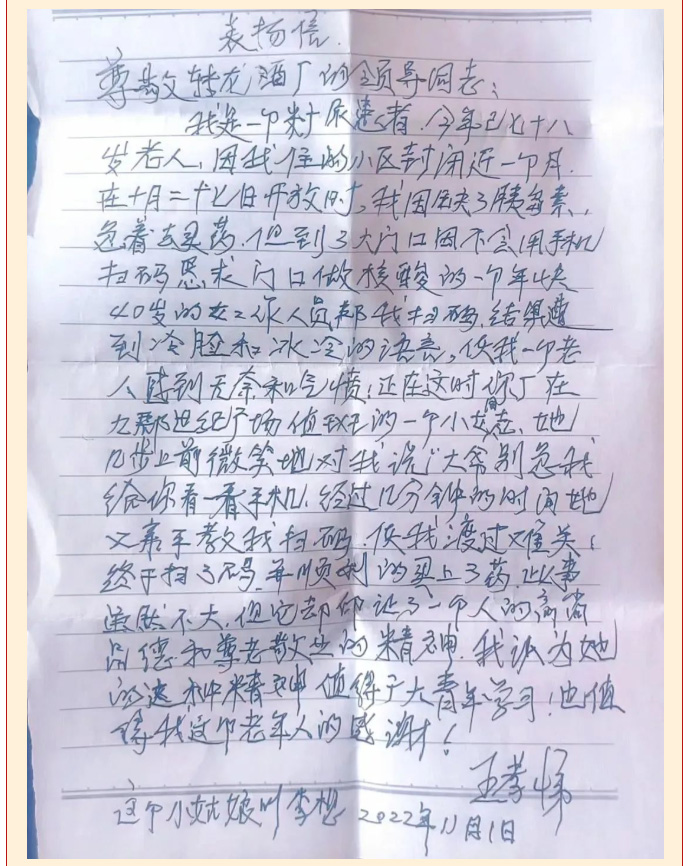 表扬信.
尊敬杜康酒厂的领导同志:
我是一个糖尿患者.今年已七十八
岁老人,因我住的小区封闭近一个月.
在十月二十七日开放时,我因缺了胰岛素,
急着去买药.但到了大门口因不会用手机
扫码恳求门口做核酸的一个年快
40岁的女工作人员帮我扫码,结果遭
到冷脸和冰冷的语言,使我一个老
人感到无奈和气愤!正在这时你厂在
九都世纪广场值班的一个小女同志,她
几步上前微笑地对我说"大爷别急我
给你看一看手机.经过几分钟的时间她
又亲手教我扫码.使我渡过难关!
终于扫了码,并顺利的买上了药.此事
虽然不大,但它却印证了一个人的高尚
品德和尊老敬老的精神.我认为她
的这种精神值得广大青年学习!也值
得我这个老年人的感谢!
王孝悌
这个小姑娘叫李想 2022年11月1日